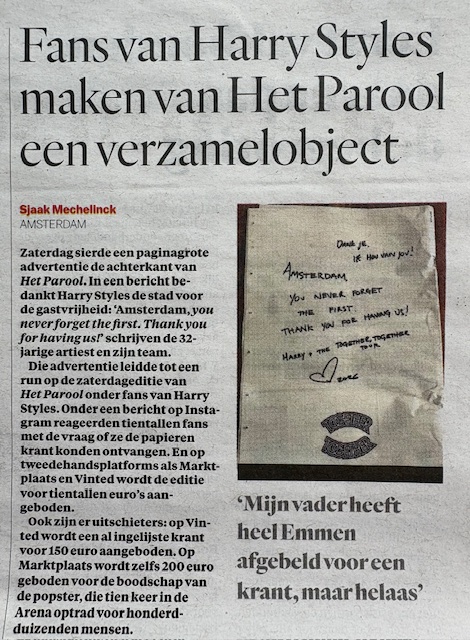 Fans van Harry Styles
maken van Het Parool
een verzamelobject
Sjaak Mechelinck
AMSTERDAM
Zaterdag sierde een paginagrote
advertentie de achterkant van
Het Parool. In een bericht be-
dankt Harry Styles de stad voor
de gastvrijheid: ‘Amsterdam, you
never forget the first. Thank you
for having us!’ schrijven de 32-
jarige artiest en zijn team.
Die advertentie leidde tot een
run op de zaterdageditie van
Het Parool onder fans van Harry
Styles. Onder een bericht op Insta-
gram reageerden tientallen fans
met de vraag of ze de papieren
krant konden ontvangen. En op
tweedehandsplatforms als Markt-
plaats en Vinted wordt de editie
voor tientallen euro’s aan-
geboden.
Ook zijn er uitschieters: op Vin-
ted wordt een al ingelijste krant
voor 150 euro aangeboden. Op
Marktplaats wordt zelfs 200 euro
geboden voor de boodschap van
de popster, die tien keer in de
Arena optrad voor honderd-
duizenden mensen.
DANK JE,
IK HOU VAN JOU!
AMSTERDAM,
YOU NEVER FORGET
THE FIRST.
THANK YOU FOR HAVING US!
HARRY + THE TOGETHER, TOGETHER
TOUR
2026
‘Mijn vader heeft
heel Emmen
afgebeld voor een
krant, maar helaas’